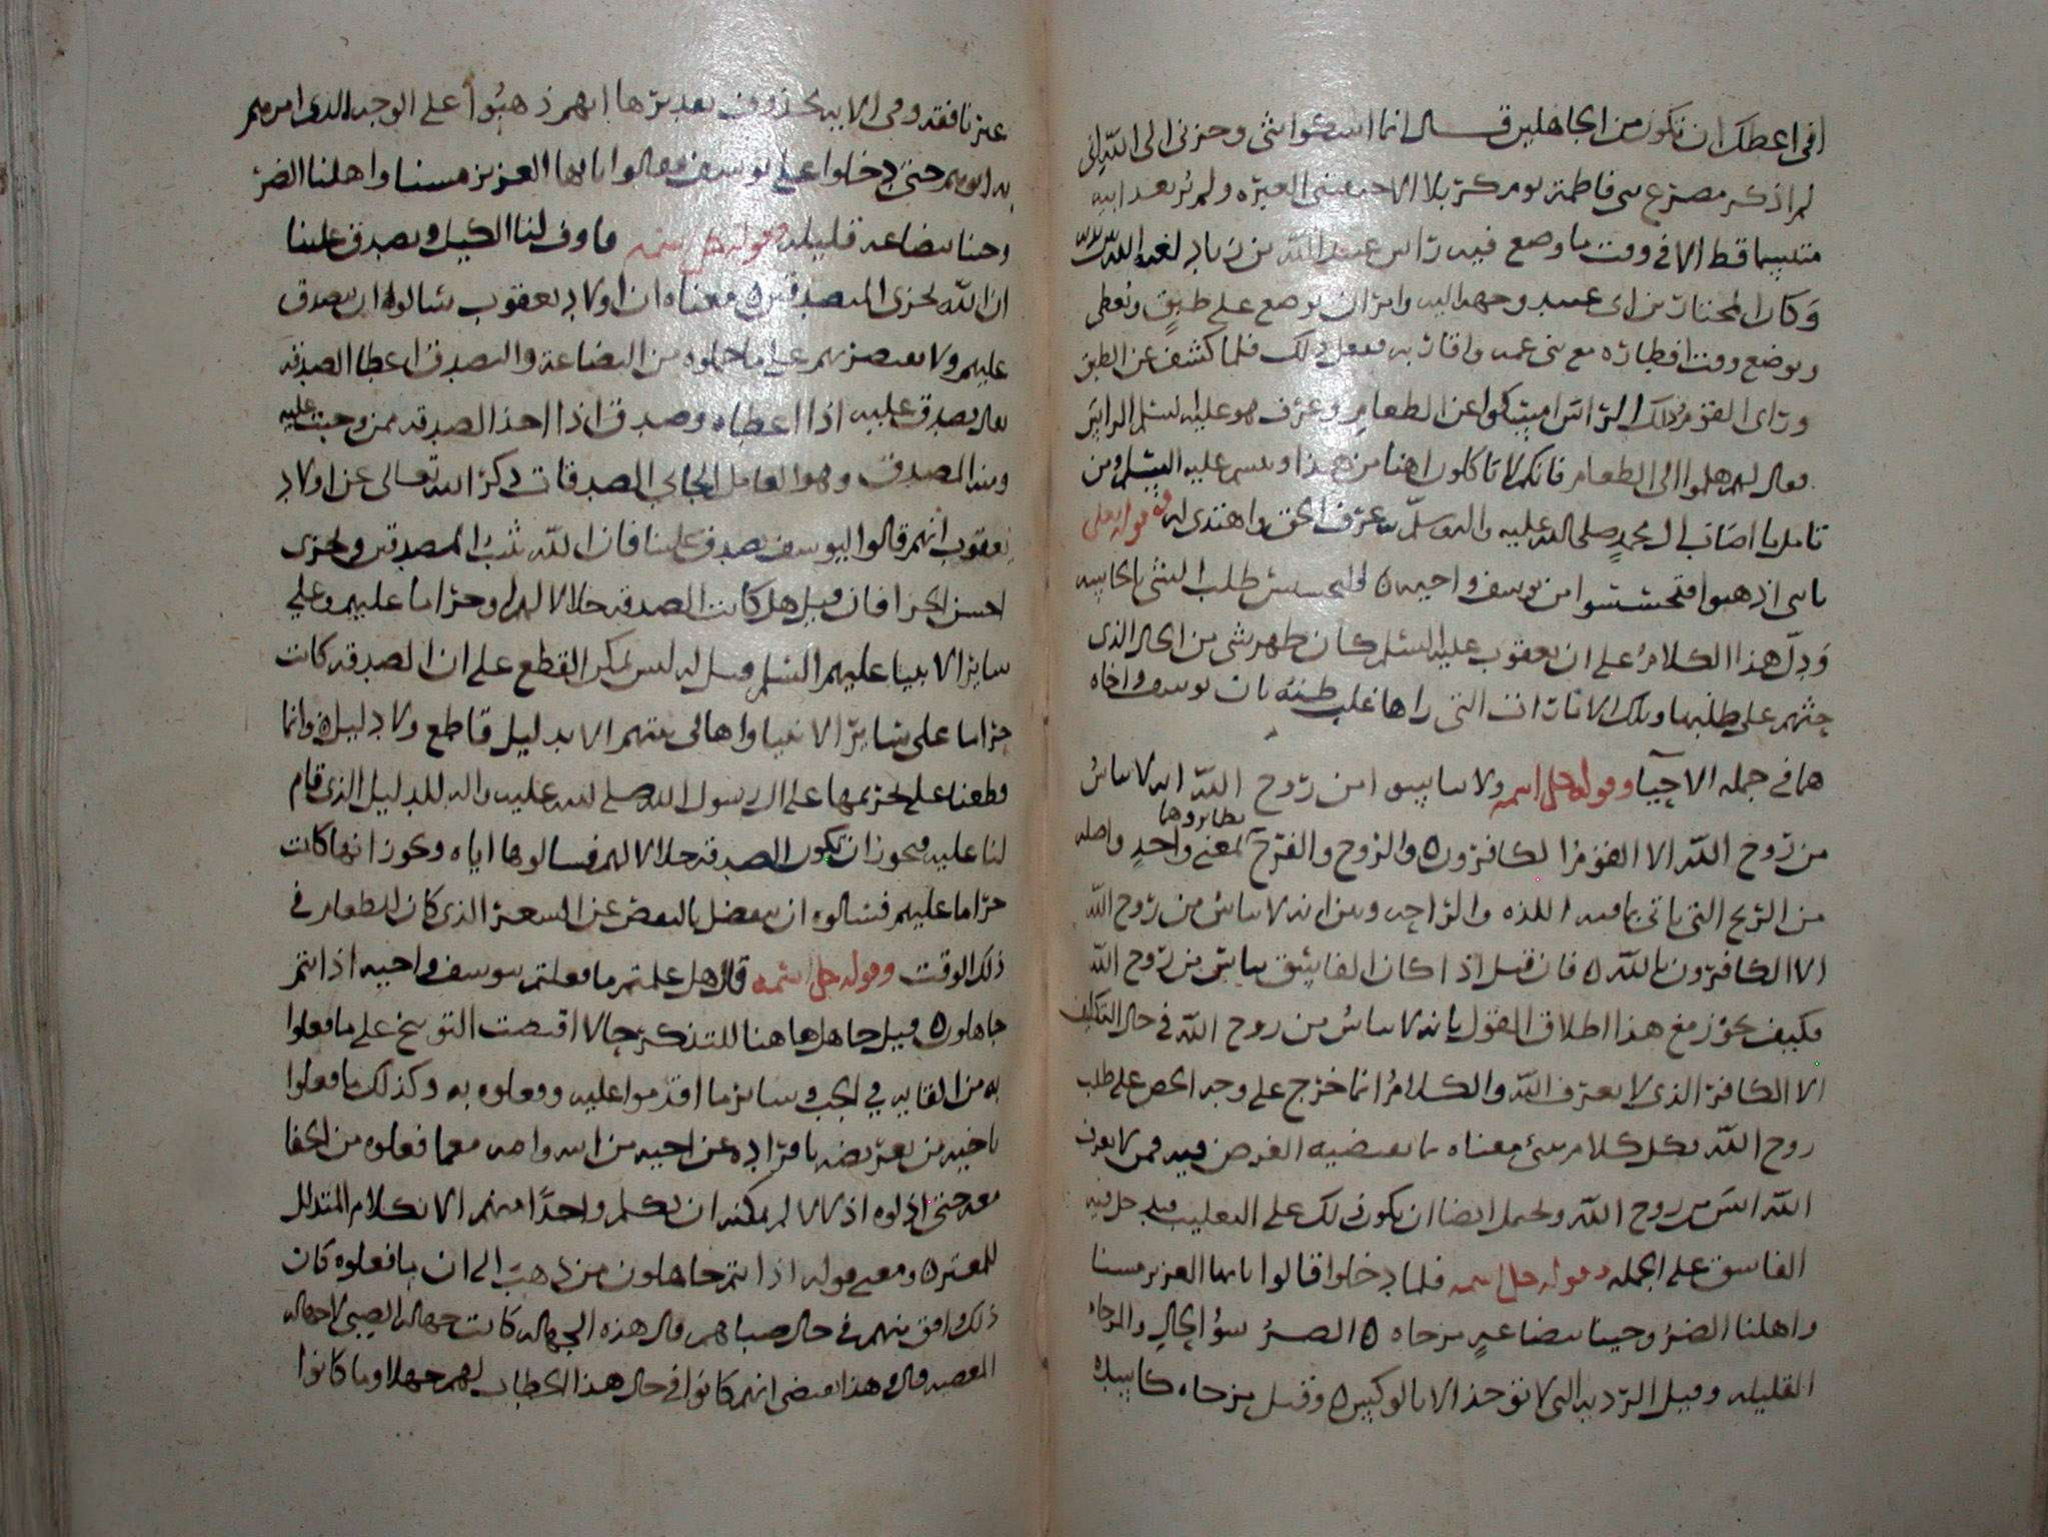 افى اعظك ان تكون من الجاهلين قال انما اشكوا بثى وحزنى الى الله انى
لم اذكر مصرع بنى فاطمة يوم كربلا الا خنقتنى العبره ولم نر بعد ابيه
متبسما قط الا فى وقت ما وضع فيه راس عبيد الله بن زياد لعنه الله
وكان المختار بن ابى عبيد وجهه اليه وامر ان يوضع على طبق ويغطى
ويوضع وقت افطاره مع بنى عمه واقاربه ففعل ذلك فلما كشف عن الطبق
وراى القوم ذلك الراس امسكوا عن الطعام وعرف هو عليه السلم الراس
فقال لهم هلموا الى الطعام فانكم لا تاكلون اهنا من هذا وتبسم عليه السلم ومن
تامل ما اصاب ال محمد صلى الله عليه واله وسلم عرف الحق واهتدى اليه قوله تعلى
يا بنى اذهبوا فتحسسوا من يوسف واخيه التحسس طلب الشى بالحاسه
ودل هذا الكلام على ان يعقوب عليه السلم كان ظهر شى من الحال الذى
حثهم على طلبها وتلك الامارات التى راها غلب ظنه بان يوسف واخاه
هما فى جمله الاحيآ وقوله جل اسمه ولا تايسوا من روح الله انه لا يياس
نظايرهما
من روح الله الا القوم الكافرون والروح والفرج المعنى واحد واصله
من الريح التى ياتى بما فيه اللذه والراحه وبين انه لا يياس من روح الله
الا الكافرون بالله فان قيل اذا كان الفاسق يياس من روح الله
فكيف يجوز مع هذا اطلاق القول بانه لا يياس من روح الله فى حال التكليف
الا الكافر الذى لا يعترف بالله والكلام انما خرج على وجه الحض على طلب
روح الله فكل كلام ينبى معناه ما يقتضيه الغرض فيه فمن لا يعرف
الله ايس من روح الله ويحتمل ايضا ان يكون ذلك على التغليب فيدخل فيه
الفاسق على الجمله وقوله جل اسمه فلما دخلوا قالوا يايها العزيز مسنا
واهلنا الضر وجينا ببضاعة مزجاه الضر سؤ الحال والمزجاه
القليله وقيل الرديه التى لا تؤخذ الا بالوكس وقيل مزجاه كاسده
غير نافقه وفى الايه محذوف تقديرها انهم ذهبوا على الوجه الذى امرهم
به ابوهم حتى دخلوا على يوسف فقالوا يايها العزيز مسنا واهلنا الضر
وجينا ببضاعه قليله وقوله جل اسمه فاوف لنا الكيل وتصدق علينا
ان الله يجزى المتصدقين معناه ان اولاد يعقوب سالوه ان يتصدق
عليهم ولا يقتصر بهم على ما حملوه من البضاعة والتصدق اعطا الصدقه
يقال تصدق عليه اذا اعطاه وصدق اذا اخذ الصدقه ممن وجبت عليه
ومنه المصدق وهو العامل الجابى الصدقات ذكر الله تعالى عن اولاد
يعقوب انهم قالوا ليوسف تصدق علينا فان الله يثيب المتصدقين ويجزى
احسن الجزا فان قيل هل كانت الصدقه حلالا لهم او حراما عليهم وعلى
ساير الانبيا عليهم السلم قيل له ليس يمكن القطع على ان الصدقه كانت
حراما على ساير الانبيا واهالى بيتهم الا بدليل قاطع ولا دليل وانما
قطعنا على تحريمها على ال رسول الله صلى الله عليه واله للدليل الذى قام
لنا عليه فيجوز ان تكون الصدقه حلالا لهم فسالوها اياه ويجوز انها كانت
حراما عليهم فسالوه ان يتفضل بالنقص عن السعر الذى كان للطعام فى
ذلك الوقت وقوله جل اسمه قال هل علمتم ما فعلتم بيوسف واخيه اذ انتم
جاهلون قيل جا هل هاهنا للتذكير بحال اقتضت التوبيخ على ما فعلوا
به من القايه فى الجب وساير ما اقدموا عليه وفعلوه به وكذلك ما فعلوا
باخيه من تعريضه بافراده عن اخيه من ابيه وامه معما فعلوه من الجفا
معه حتى اذلوه اذلالا لم يمكنه ان يكلم واحدًا منهم الا بكلام المتذلل
للمعتز ومعنى قوله اذ انتم جاهلون من ذهب الى ان ما فعلوه كان
ذلك وقع منهم فى حال صباهم قال هذه الجهاله كانت جهاله الصبى لا جهاله
المعصيه قال وهذا يقتضى انهم كانوا فى حال هذا الخطاب لهم جهلا وما كانوا